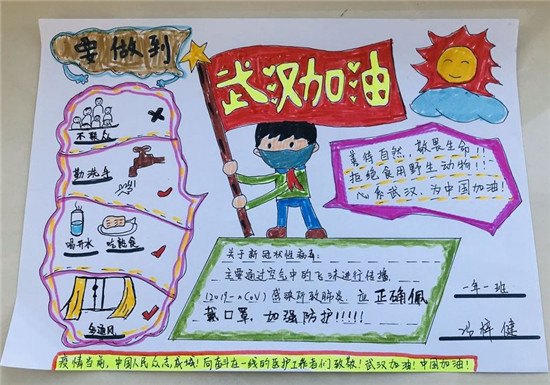 要做到
武汉加油
不聚众
勤洗手
喝开水
吃熟食
多通风
善待自然,敬畏生命!!
拒绝食用野生动物!!
心系武汉,为中国加油!
关于新冠状性病毒:
主要通过空气中的飞沫进行传播
(2019-nCoV)感染所致肺炎,应正确佩
戴口罩,加强防护!!!!!
一年一班
冯梓健
疫情当前,中国人民众志成城!向奋斗在一线的医护工作者们致敬!武汉加油!中国加油!